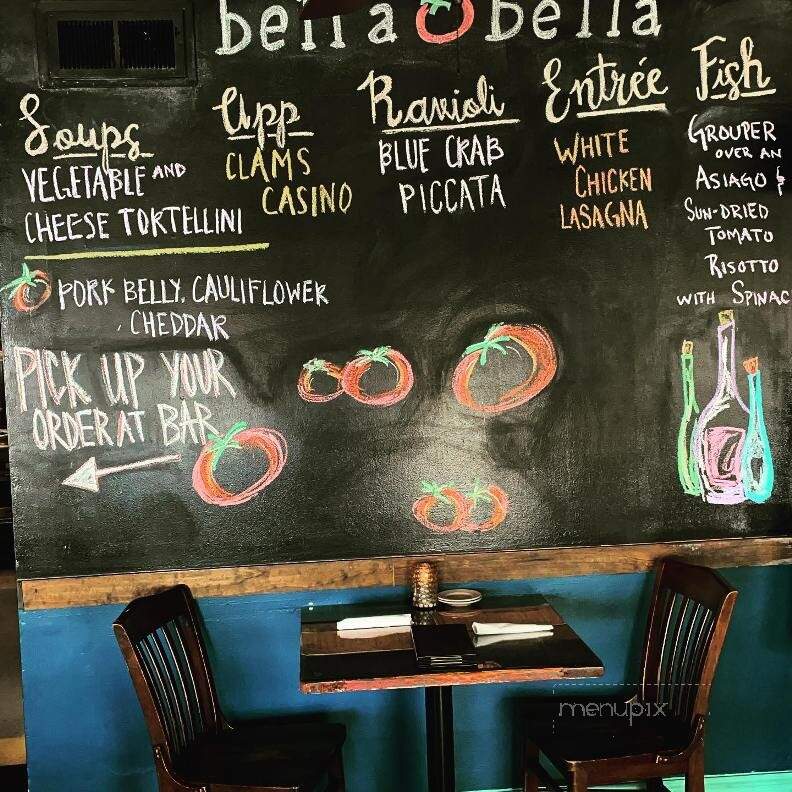 bella bella
Soups
VEGETABLE AND
CHEESE TORTELLINI
PORK BELLY, CAULIFLOWER
, CHEDDAR
PICK UP YOUR
ORDER AT BAR
App
CLAMS
CASINO
Ravioli
BLUE CRAB
PICCATA
Entrée
WHITE
CHICKEN
LASAGNA
Fish
GROUPER
OVER AN
ASIAGO &
SUN-DRIED
TOMATO
RISOTTO
WITH SPINAC
menupix